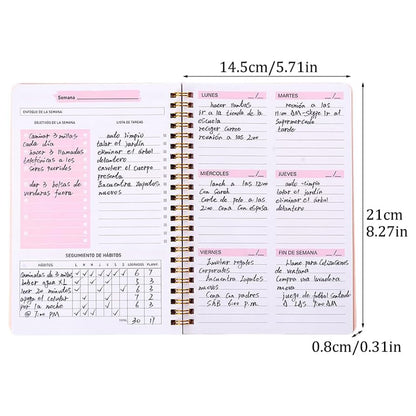 14.5cm/5.71in
21cm
8.27in
0.8cm/0.31in
Semana
ENFOQUE DE LA SEMANA
OBJETIVOS DE LA SEMANA
LISTA DE TAREAS
Caminar 3 millas
cada día
hacer 3 llamadas
telefónicas a los
seres queridos
der 3 bolsas de
verduras fuera
auto limpio
talar el jardín
eliminar el árbol
delantero
envolver el
presenta
Encuentra zapatos
nuevos
SEGUIMIENTO DE HÁBITOS
HÁBITOS L M M J V S D LOGRADOS PLANIF.
Caminatas de 3 millas 6 7
beber agua X2 5 3
leer 20 minutos 6 3
apaga el celular 7 2
por la noche 6 3
@ 7:00 PM
TOTAL 30 17
LUNES
hacer
a la tienda de la
escuela
recoger correo
reunión a las 2:00
MARTES
reunión a las
11:00 AM ir al
supermercado
tarde
MIÉRCOLES
lunch a las 12:00
con Sarah
Corte de pelo a las
2:00 Cena con esposa
JUEVES
auto limpio
talar el jardín
eliminar el árbol
delantero
VIERNES
Envolver regalos
corporales
Encuentra zapatos
nuevos
Cena con padres
SAB 6:00 p.m.
FIN DE SEMANA
llame para Cotizaciones
de ventana
Compra una lavadora
nueva
juego de futbol
A las AM